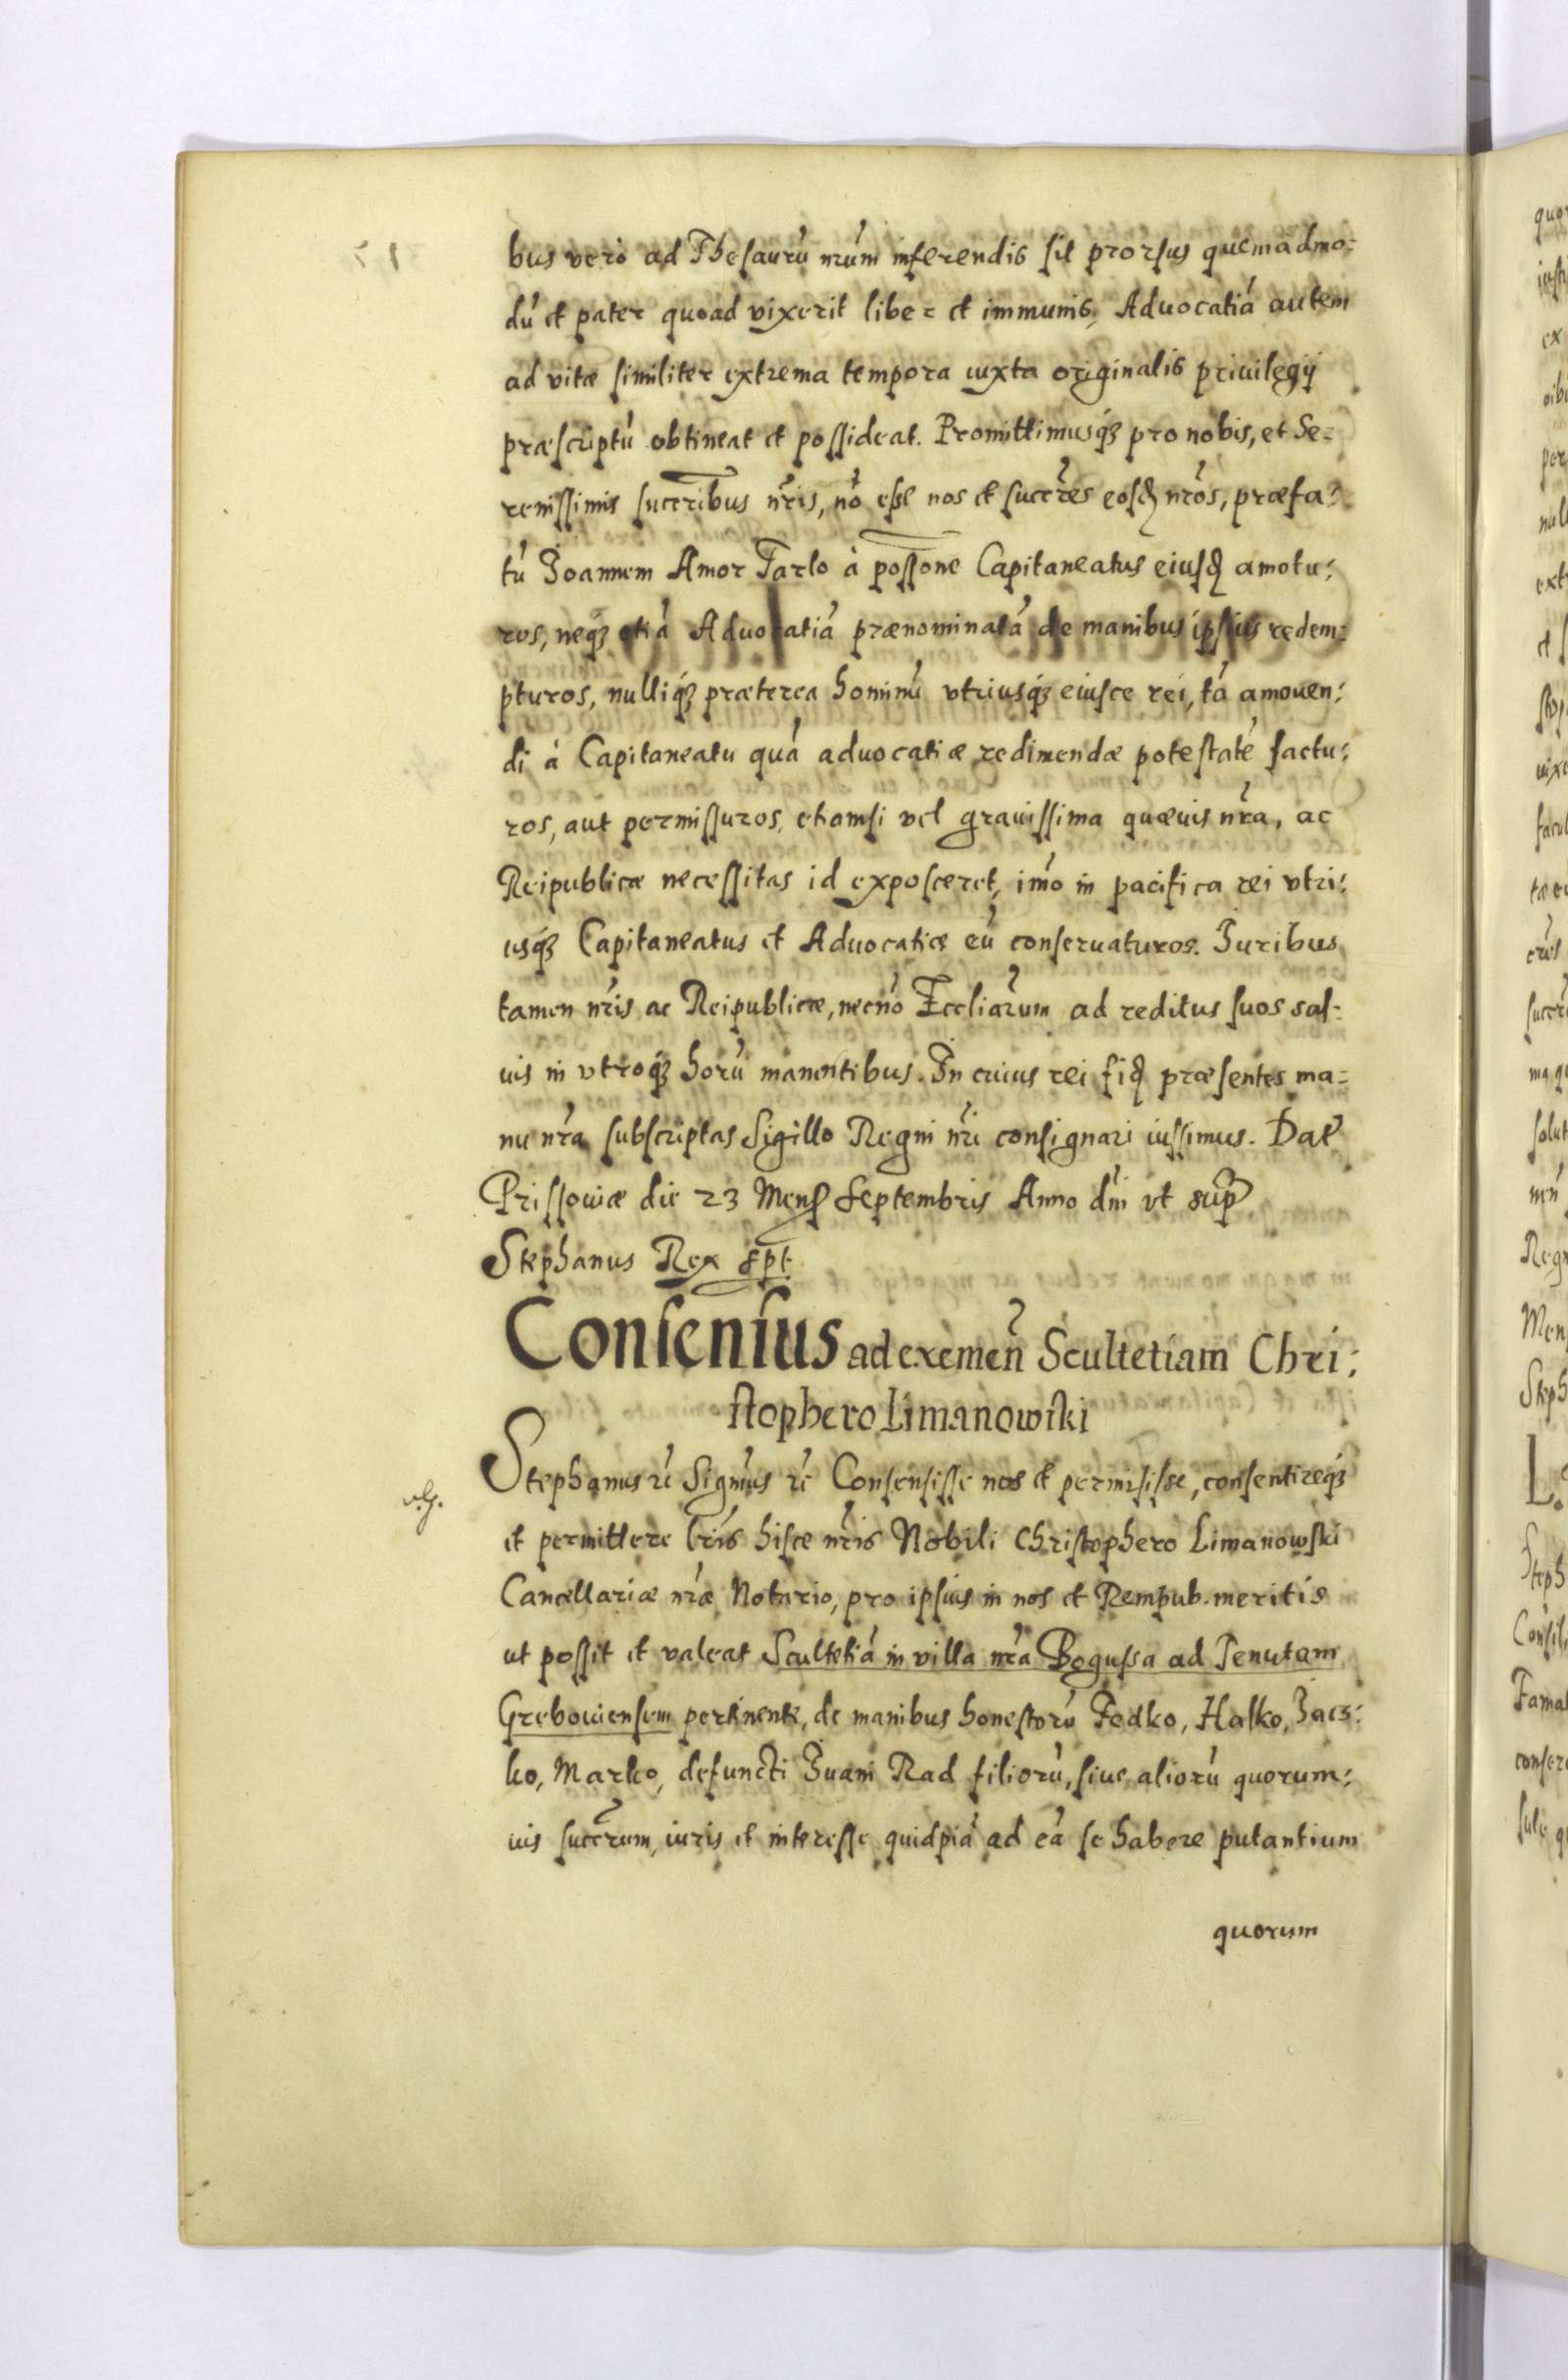 bus vero ad Thesaurũ nrũm inferendis sit prorsus quemadmo=
dũ et pater quoad vixerit liber et immunis, Advocatiã autem
ad vitæ similiter extrema tempora iuxta originalis priuilegij
præscriptũ obtineat et possideat. Promittimusq́ꝫ pro nobis, et Se=
renissimis succribus nr̃is, nõ esse nos et succr̃es eosd nr̃os, præfa:
tũ Joannem Amor Tarlo à posſone Capitaneatus eiusd amotu:
ros, neq́ꝫ etiã Aduocatiã prænominatã de manibus ipsius redem=
pturos, nulliq́ꝫ præterea hominũ vtriusq́ꝫ eiusce rei, tã amouen:
di à Capitaneatu quã aduocatiæ redimendæ potestatẽ factu:
ros, aut permissuros, etiamsi vel grauissima quævis nr̃a, ac
Reipublicæ necessitas id exposceret, imõ in pacifica rei vtri:
usq́ꝫ Capitaneatus et Aduocatiæ eũ conseruaturos. Juribus
tamen nr̃is ac Reipublicæ, necnõ Eccliarũm ad reditus suos sal:
uis in vtroq́ꝫ horũ manentibus. In cuius rei fid præsentes ma=
nu nr̃a subscriptas Sigillo Regni nr̃i consignari iussimus. Dat̃
Prissoviæ die 23 Mens Septembris Anno dñi vt sup̃
Stephanus Rex sspt
Consensus ad exemeñ Scultetiam Chri:
stophero Limanowski
Stephanus rẽ Signũs rẽ Consensisse nos et permisisse, consentireq́ꝫ
et permittere lr̃is hisce nr̃is Nobili Christophero Limanowski
Cancellariæ nr̃æ Notario, pro ipsius in nos et Rempub. meritis
ut possit et valeat Scultetiã in villa nr̃a Bogussa ad Tenutam
Greboviensem pertinente, de manibus honestorũ Fedko, Halko, Jacz:
ko, Marko, defuncti Juani Rad filiorũ, siue aliorũ quorum:
uis succr̃um, iuris et interesse quidpiã ad eã se habere putantium
quorum